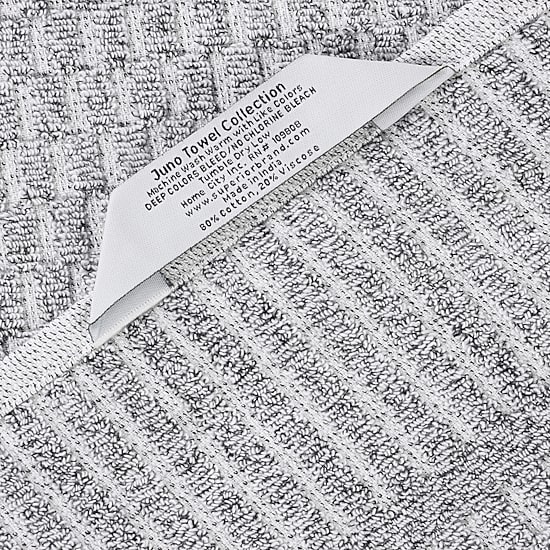 Juno Towel Collection
Machine Wash Warm with Like Colors
DEEP COLORS BLEED/NO CHLORINE BLEACH
Tumble Dry Low
Home City Inc. RN# 109808
www.superiorbrand.com
Made in India
80% Cotton 20% Viscose